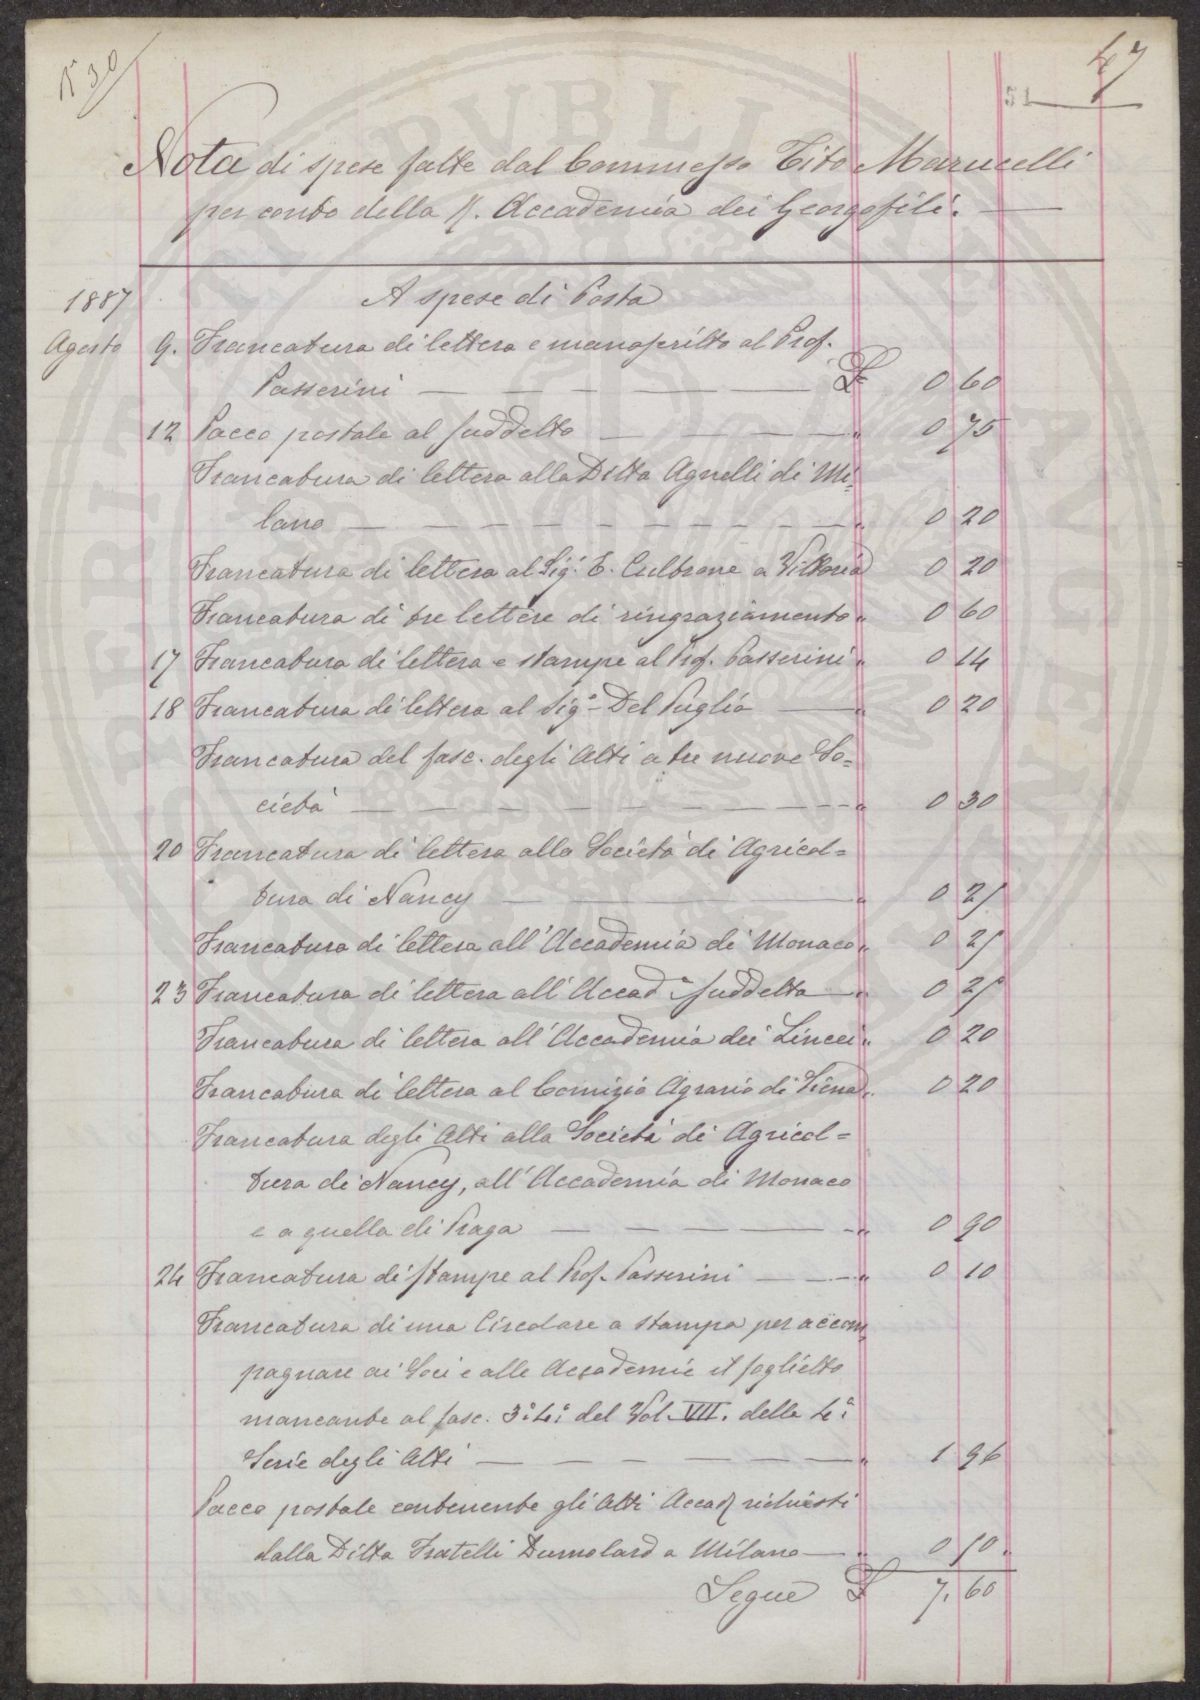 N° 30
47
51
Nota di spese fatte dal Commesso Tito Marucelli
per conto della R. Accademia dei Georgofili.
1887 A spese di Posta
Agosto 9. Francatura di lettera e manoscritto al Prof.
Passerini — £ 0 60
12 Pacco postale al suddetto — " 0 75
Francatura di lettera alla Ditta Agnelli di Mi=
lano — " 0 20
Francatura di lettera al Sig. E. Cultrone a Vittoria 0 20
Francatura di tre lettere di ringraziamento " 0 60
17 Francatura di lettera e stampe al Prof. Passerini " 0 14
18 Francatura di lettera al Sig.r Del Puglia — " 0 20
Francatura del fasc. degli Atti a tre nuove So=
cietà — " 0 30
20 Francatura di lettera alla Società di Agricol=
tura di Nancy — " 0 25
Francatura di lettera all'Accademia di Monaco " 0 25
23 Francatura di lettera all'Accad.a suddetta — " 0 25
Francatura di lettera all'Accademia dei Lincei " 0 20
Francatura di lettera al Comizio Agrario di Siena " 0 20
Francatura degli Atti alla Società di Agricol=
tura di Nancy, all'Accademia di Monaco
e a quella di Praga — " 0 90
24 Francatura di stampe al Prof. Passerini — " 0 10
Francatura di una Circolare a stampa per accom
pagnare ai Soci e alle Accademie il foglietto
mancante al fasc. 3° 4° del Vol. VII. della 4a
Serie degli Atti — " 1 96
Pacco postale contenente gli Atti Accad. richiesti
dalla Ditta Fratelli Dumolard a Milano — " 0 50.
Segue £ 7. 60